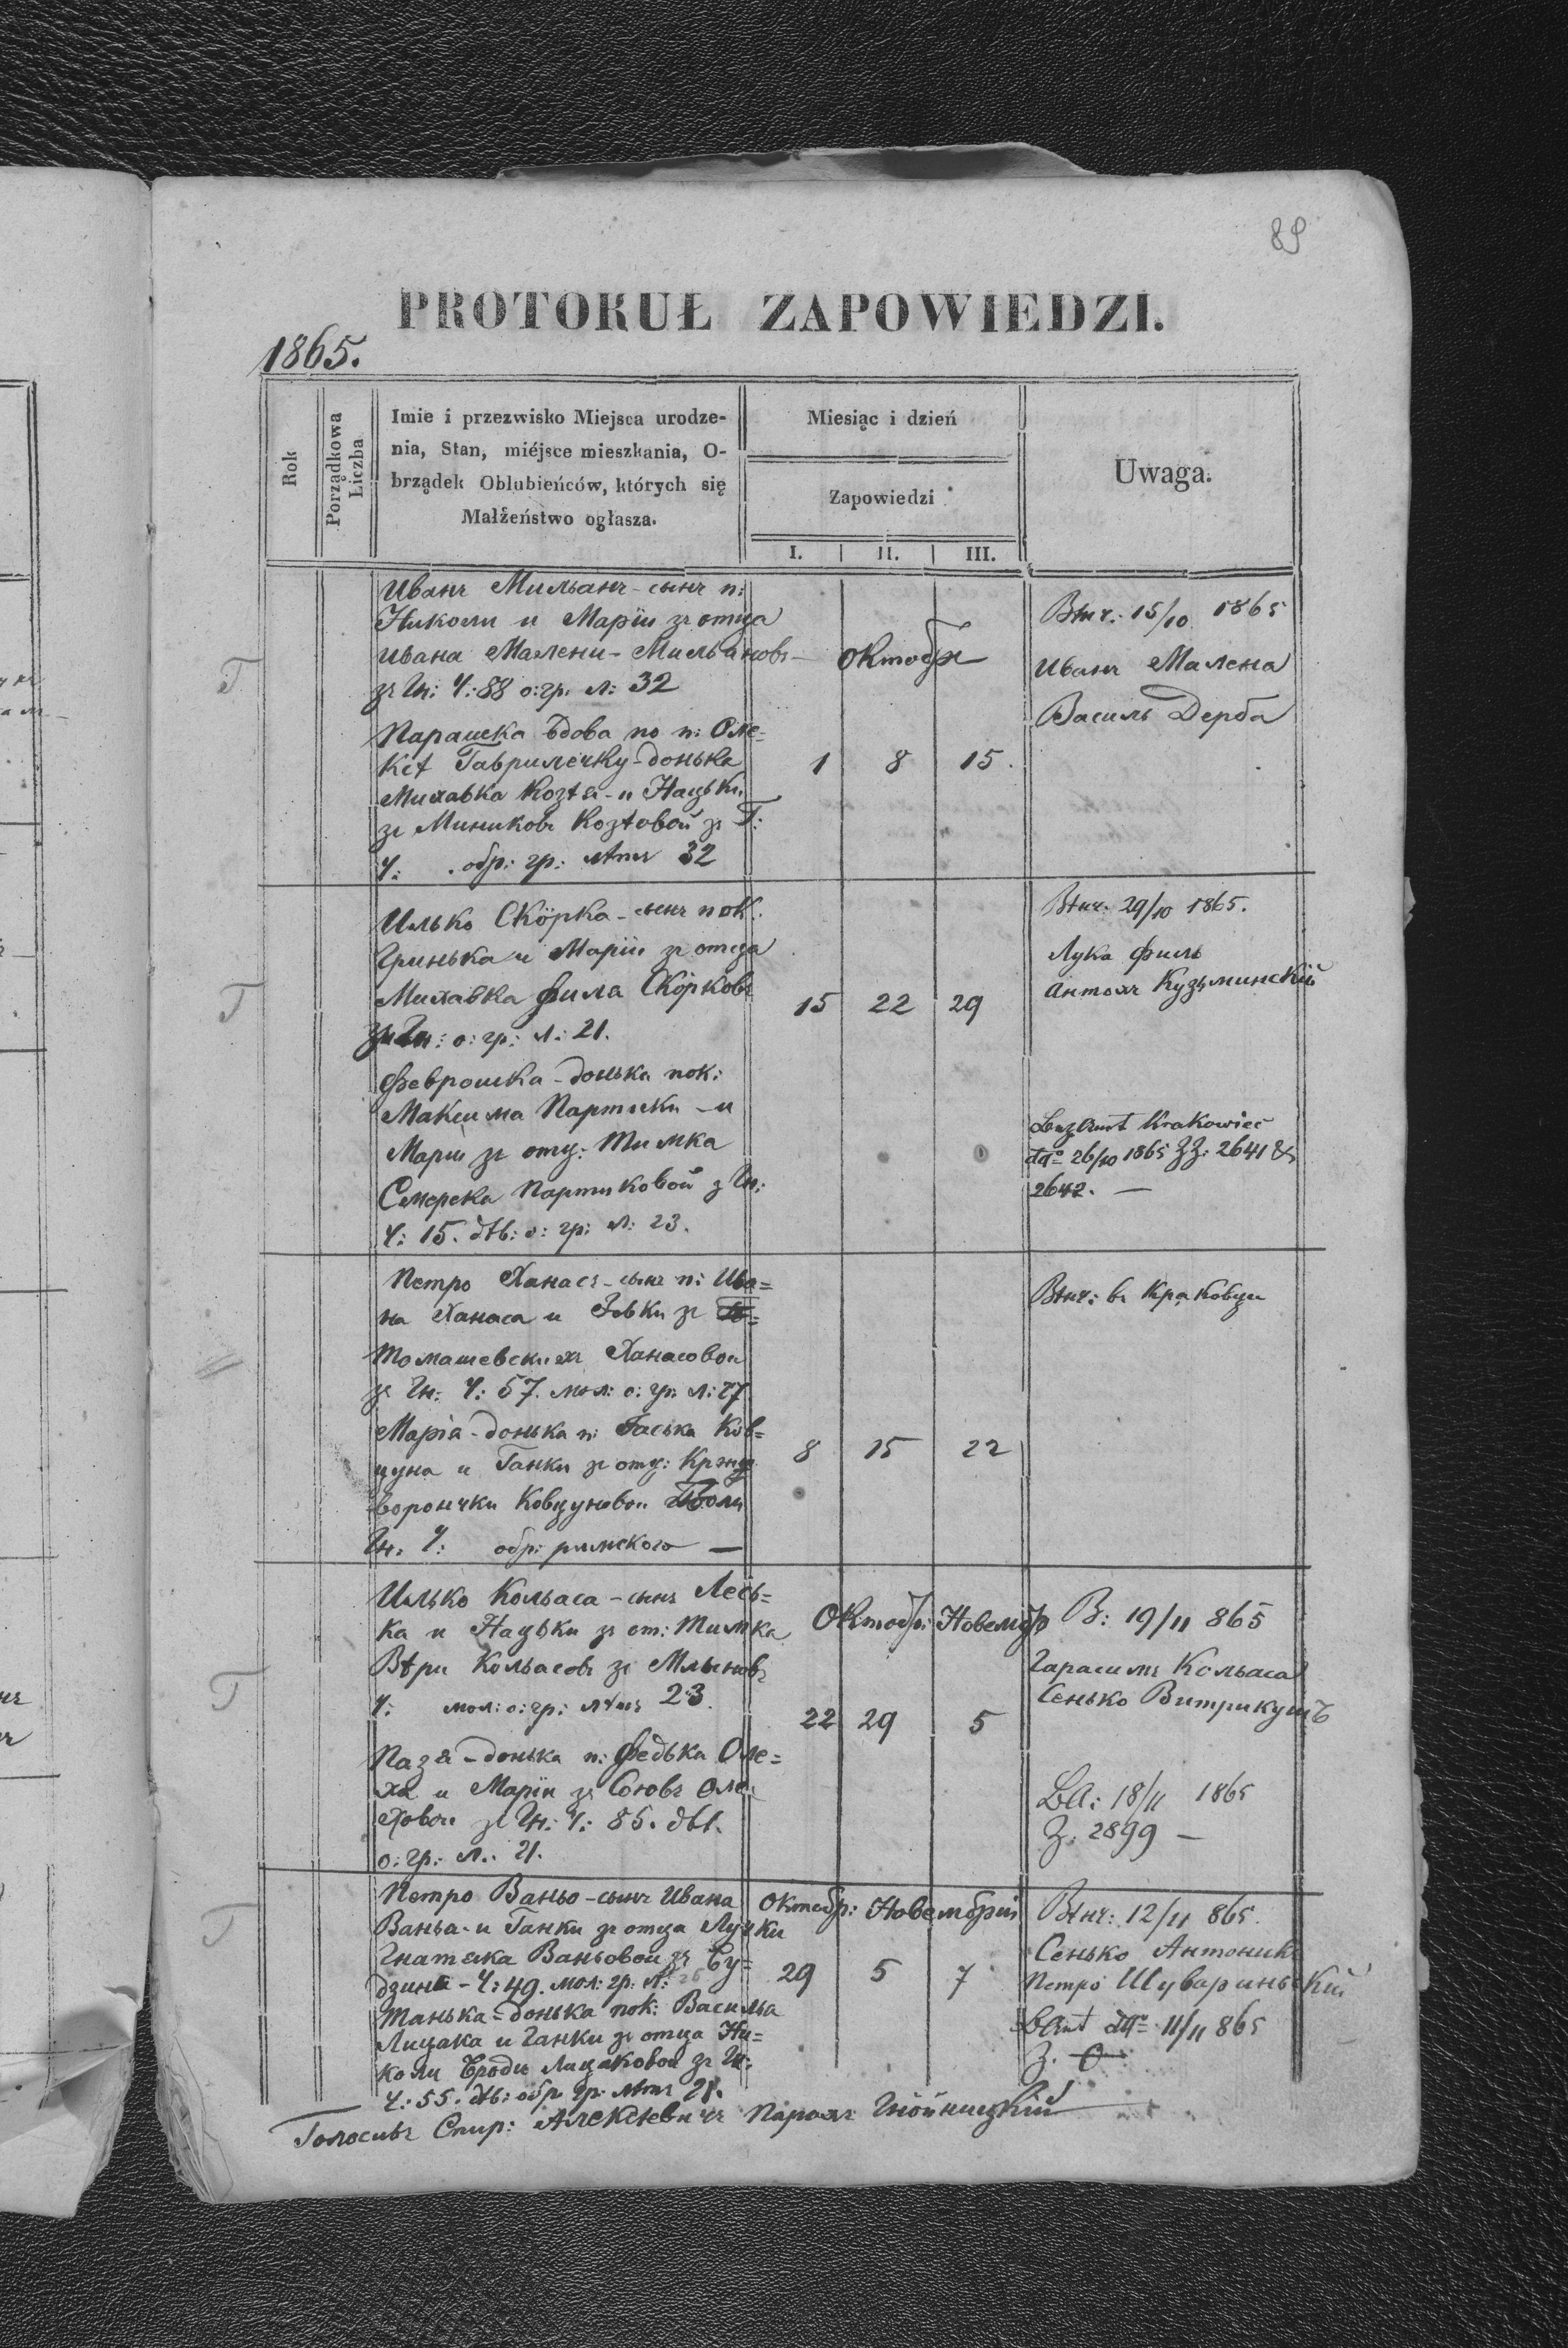 89
PROTOKUŁ ZAPOWIEDZI.
1865.
Rok
Porządkowa Liczba
Imie i przezwisko Miejsca urodze-
nia, Stan, miéjsce mieszkania, O-
brządek Oblubieńców, których się
Małżeństwo ogłasza.
Miesiąc i dzień
Zapowiedzi
I. II. III.
Uwaga.
Г
Иванъ Мильанъ - сынъ п:
Николи и Маріи зъ отца
Ивана Малени - Мильановъ
зъ Гн: Ч: 88 о: гр. л: 32
Парашка вдова по п: Оле=
Гаврилечку - донька
Михавка Козѣя - и Нацьки
зъ Миниковъ Козѣовой зъ Г:
Ч: обр: гр: лѣтъ 32
Октобрь
1 8 15.
Вѣнч: 15/10 1865
Иванъ Малена
Василь Дерба
Г
Илько Скôрка - сынъ пок:
Гринька и Маріи зъ отца
Михавка Фила Скôрковъ
Гн: о: гр: л: 21.
Феврошка - донька пок:
Максима Партики - и
Маріи зъ отц: Тимка
Семерека Партиковой зъ Гн:
Ч: 15. дѣв: о: гр: л: 23.
15 22 29
Вѣнч. 29/10 1865.
Лука Филь
Антонъ Кузьминскій
BezAmt Krakowiec
ddo 26/10 1865 ZZ: 2641 &
2642. —
Петро Ханасъ - сынъ п: Ива=
на Ханаса и Евки зъ
Томашевскихъ Ханасовои
зъ Гн: Ч: 57. мол: о: гр: л: 27
Марія - донька п: Гаська Ков=
цуна и Ганки зъ отц:
Ворончки Ковцуновои
Гн. Ч: обр: римского —
8 15 22
Вѣнч: въ Краковци
Г
Илько Кольаса - сынъ Лесь=
ка и Нацьки зъ от: Тимка
Вѣри Кольасовъ зъ Млыновъ
Ч: мол: о: гр: лѣтъ 23.
Пазя - донька п: Федька Оле=
ха и Маріи зъ Соювъ Оле
ховои зъ Гн: Ч: 85. дѣв.
о: гр: л: 21.
Октобр: Новембр
22 29 5
В: 19/11 865
Гарасимъ Кольаса
Сенько Витрикушъ
BA: 18/11 1865
Z: 2899 —
Г
Петро Ваньо - сынъ Ивана
Ванья - и Ганки зъ отца Луцки
Гнатяка Ваньовои зъ Бу=
дзинѣ - Ч: 49. мол: гр. л: 26
Танька - донька пок: Василья
Лицака и Ганки зъ отца Ни=
коли Броди Лицаковои зъ Гн:
Ч: 55. дѣв: обр гр. лѣтъ 21.
Октобр: Новембрій
29 5 7
Вѣнч: 12/11 865.
Сенько Антоникъ
Петро Шувариньскій
BAmt ddo 11/11 865
Z. 0
Голосивъ Спир: Алексѣевичъ Парохъ Гнойницкій